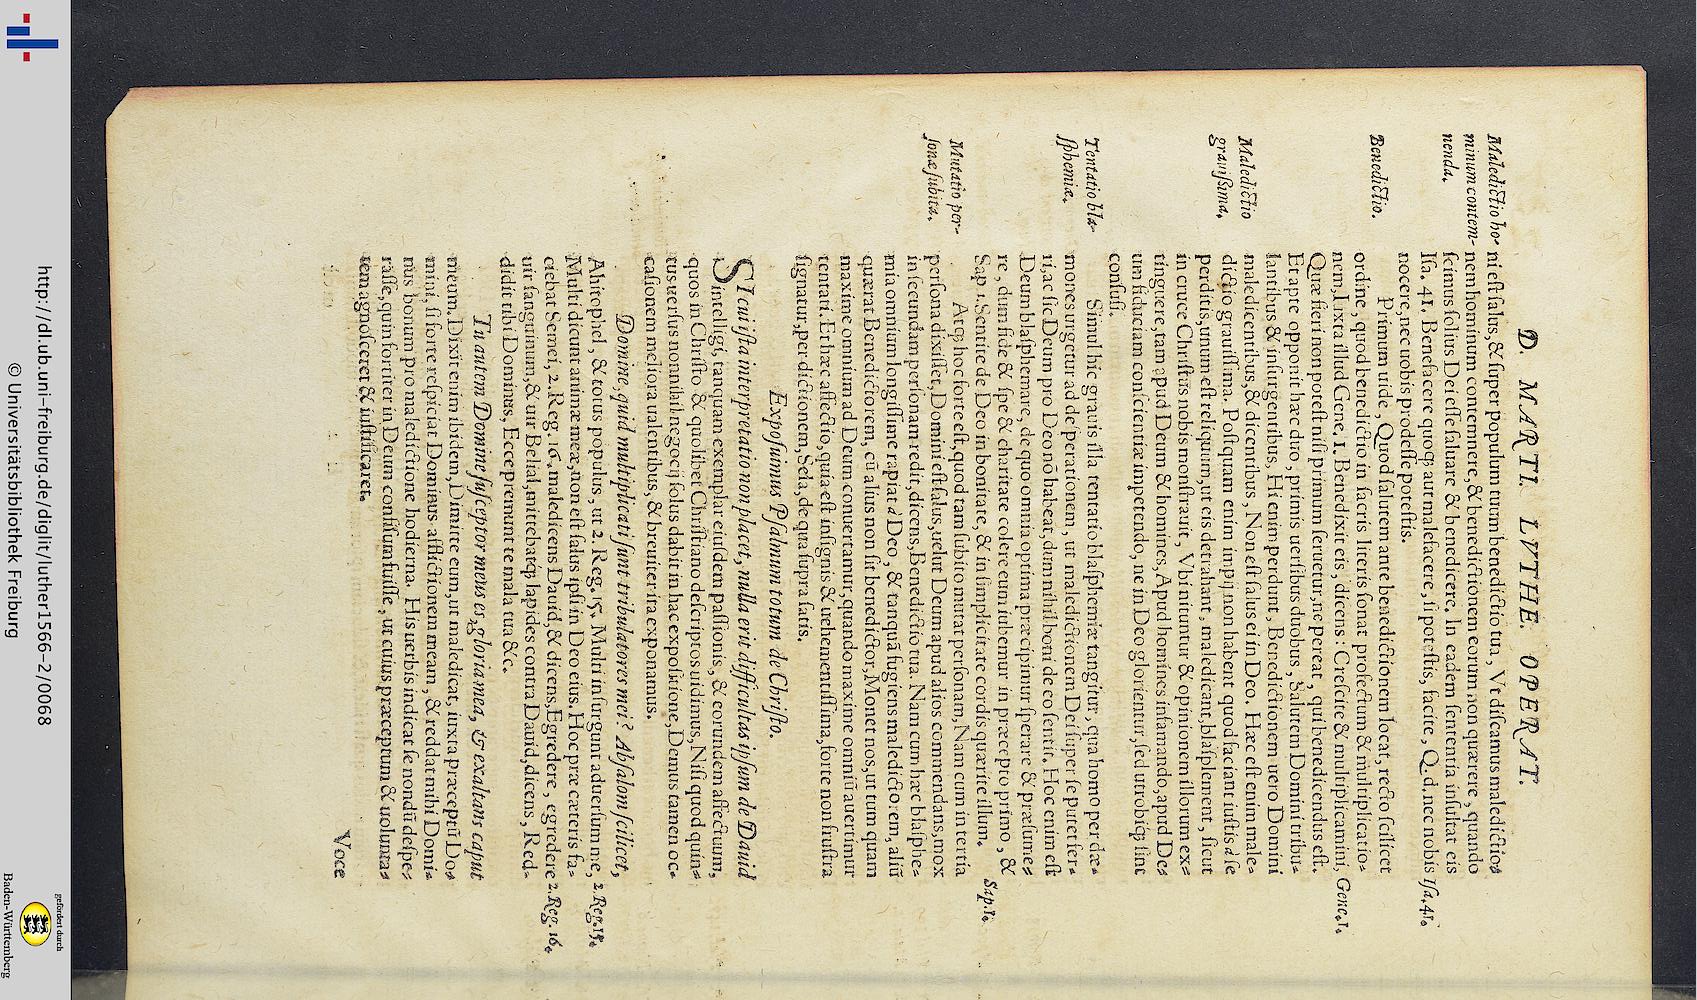 D. MARTI. LVTHE. OPERAT.
Maledictio ho-
minum contem-
nenda.
ni est salus, & super populum tuum benedictio tua, Vt discamus maledictio=
nem hominum contemnere, & benedictionem eorum non quærere, quando
scimus solius Dei esse saluare & benedicere. In eadem sententia insultat eis
Isa. 41. Benefacere quoq; aut malefacere, si potestis, facite, Q. d. nec nobis
nocere, nec uobis prodesse potestis.
Isa. 41.
Benedictio.
Primum uide, Quod salutem ante benedictionem locat, recto scilicet
ordine, quod benedictio in sacris literis sonat profectum & multiplicatio=
nem, Iuxta illud Gene. 1. Benedixit eis, dicens: Crescite & multiplicamini,
Quæ fieri non potest nisi primum seruetur, ne pereat, qui benedicendus est.
Et apte opponit hæc duo, primis uersibus duobus, Salutem Domini tribu-
lantibus & insurgentibus, Hi enim perdunt, Benedictionem uero Domini
maledicentibus, & dicentibus, Non est salus ei in Deo. Hæc est enim male-
dictio grauissima. Postquam enim impij non habent quod faciant iustis à se
perditis, unum est reliquum, ut eis detrahant, maledicant, blasphement, sicut
in cruce Christus nobis monstrauit, Vbi nituntur & opinionem illorum ex=
tinguere, tam apud Deum & homines, Apud homines infamando, apud De=
um fiduciam conscientiæ impetendo, ne in Deo glorientur, sed utrobiq; sint
confusi.
Gene. 1.
Maledictio
grauißima.
Tentatio bla-
sphemiæ.
Simul hic grauis illa tentatio blasphemiæ tangitur, qua homo per dæ=
mones urgetur ad desperationem, ut maledictionem Dei super se putet fer=
ri, ac sic Deum pro Deo nõ habeat, dum nihil boni de eo sentit. Hoc enim est
Deum blasphemare, de quo omnia optima præcipimur sperare & præsume=
re, dum fide & spe & charitate colere eum iubemur in præcepto primo, &
Sap 1. Sentite de Deo in bonitate, & in simplicitate cordis quærite illum.
Sap. 1.
Mutatio per-
sonæ subita.
Atq; hoc forte est, quod tam subito mutat personam, Nam cum in tertia
persona dixisset, Domini est salus, uelut Deum apud alios commendans, mox
in secundam personam redit, dicens, Benedictio tua. Nam cum hæc blasphe=
mia omnium longissime rapiat à Deo, & tanquã fugiens maledictorem, aliũ
quærat Benedictorem, cũ alius non sit benedictor, Monet nos, ut tum quam
maxime omnium ad Deum conuertamur, quando maxime omniũ auertimur
tentati. Et hæc affectio, quia est insignis & uehementissima, forte non frustra
signatur, per dictionem, Sela, de qua supra satis.
Exposuimus Psalmum totum de Christo.
SI cui ista interpretatio non placet, nulla erit difficultas ipsum de Dauid
intelligi, tanquam exemplar eiusdem passionis, & eorundem affectuum,
quos in Christo & quolibet Christiano descriptos uidimus, Nisi quod quin=
tus uersus nonnihil negocij solus dabit in hac expositione, Demus tamen oc=
casionem meliora ualentibus, & breuiter ita exponamus.
Domine, quid multiplicati sunt tribulatores mei? Absalom scilicet,
Ahitophel, & totus populus, ut 2. Reg. 15. Multi insurgunt aduersum me,
Multi dicunt animæ meæ, non est salus ipsi in Deo eius. Hoc præ cæteris fa=
ciebat Semei, 2. Reg. 16. maledicens Dauid, & dicens, Egredere, egredere
uir sanguinum, & uir Belial, mittebatq; lapides contra Dauid, dicens, Red-
didit tibi Dominus, Ecce premunt te mala tua &c.
2. Reg. 15.
2. Reg. 16.
Tu autem Domine susceptor meus es, gloria mea, & exaltans caput
meum. Dixit enim ibidem, Dimitte eum, ut maledicat, iuxta præceptũ Do=
mini, si forte respiciat Dominus afflictionem meam, & reddat mihi Domi=
nus bonum pro maledictione hodierna. His uerbis indicat se nondũ despe=
rasse, quin fortiter in Deum confisum fuisse, ut cuius præceptum & uolunta=
tem agnosceret & iustificaret.
Voce
http://dl.ub.uni-freiburg.de/diglit/luther1566-2/0068
© Universitätsbibliothek Freiburg
gefördert durch
Baden-Württemberg